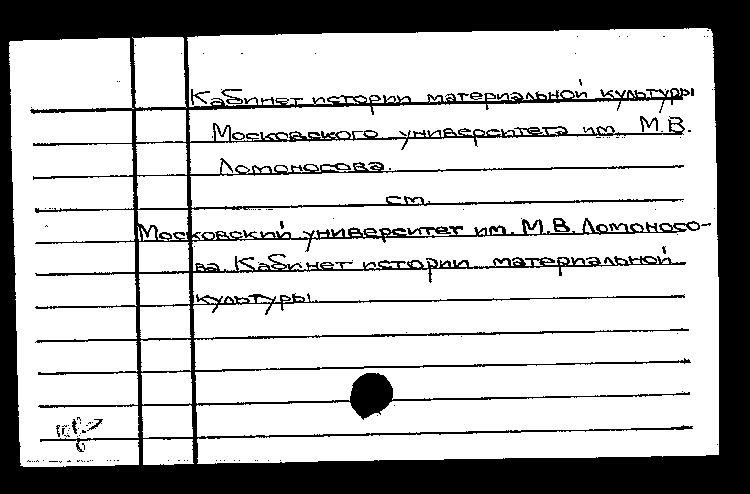 Кабинет истории материальной культуры
Московского университета им. М.В.
Ломоносова.
см.
Московский университет им. М.В. Ломоносо-
ва. Кабинет истории материальной
культуры.